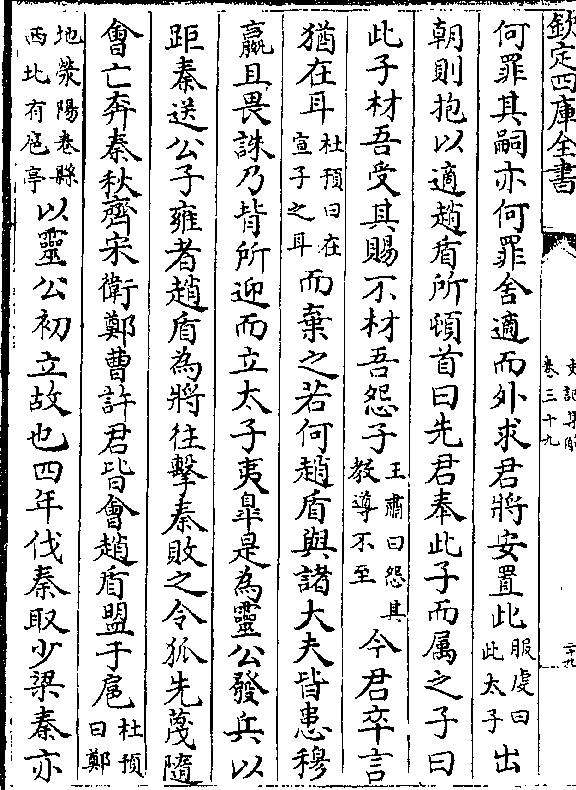 欽定四庫全書
史記集解
卷三十九
何罪其嗣亦何罪舍適而外求君將安置此服虔曰此太子出
朝則抱以適趙盾所頓首曰先君奉此子而属之子曰
此子材吾受其賜不材吾怨子王肅曰怨其教導不至今君卒言
猶在耳杜預曰在宣子之耳而棄之若何趙盾與諸大夫皆患穆
嬴且畏誅乃背所迎而立太子夷臯是為靈公發兵以
距秦送公子雍者趙盾為將往擊秦敗之令狐先蔑隨
會亡奔秦秋齊宋衛鄭曹許君皆會趙盾盟于扈杜預曰鄭
地滎陽卷縣西北有扈亭以靈公初立故也四年伐秦取少梁秦亦